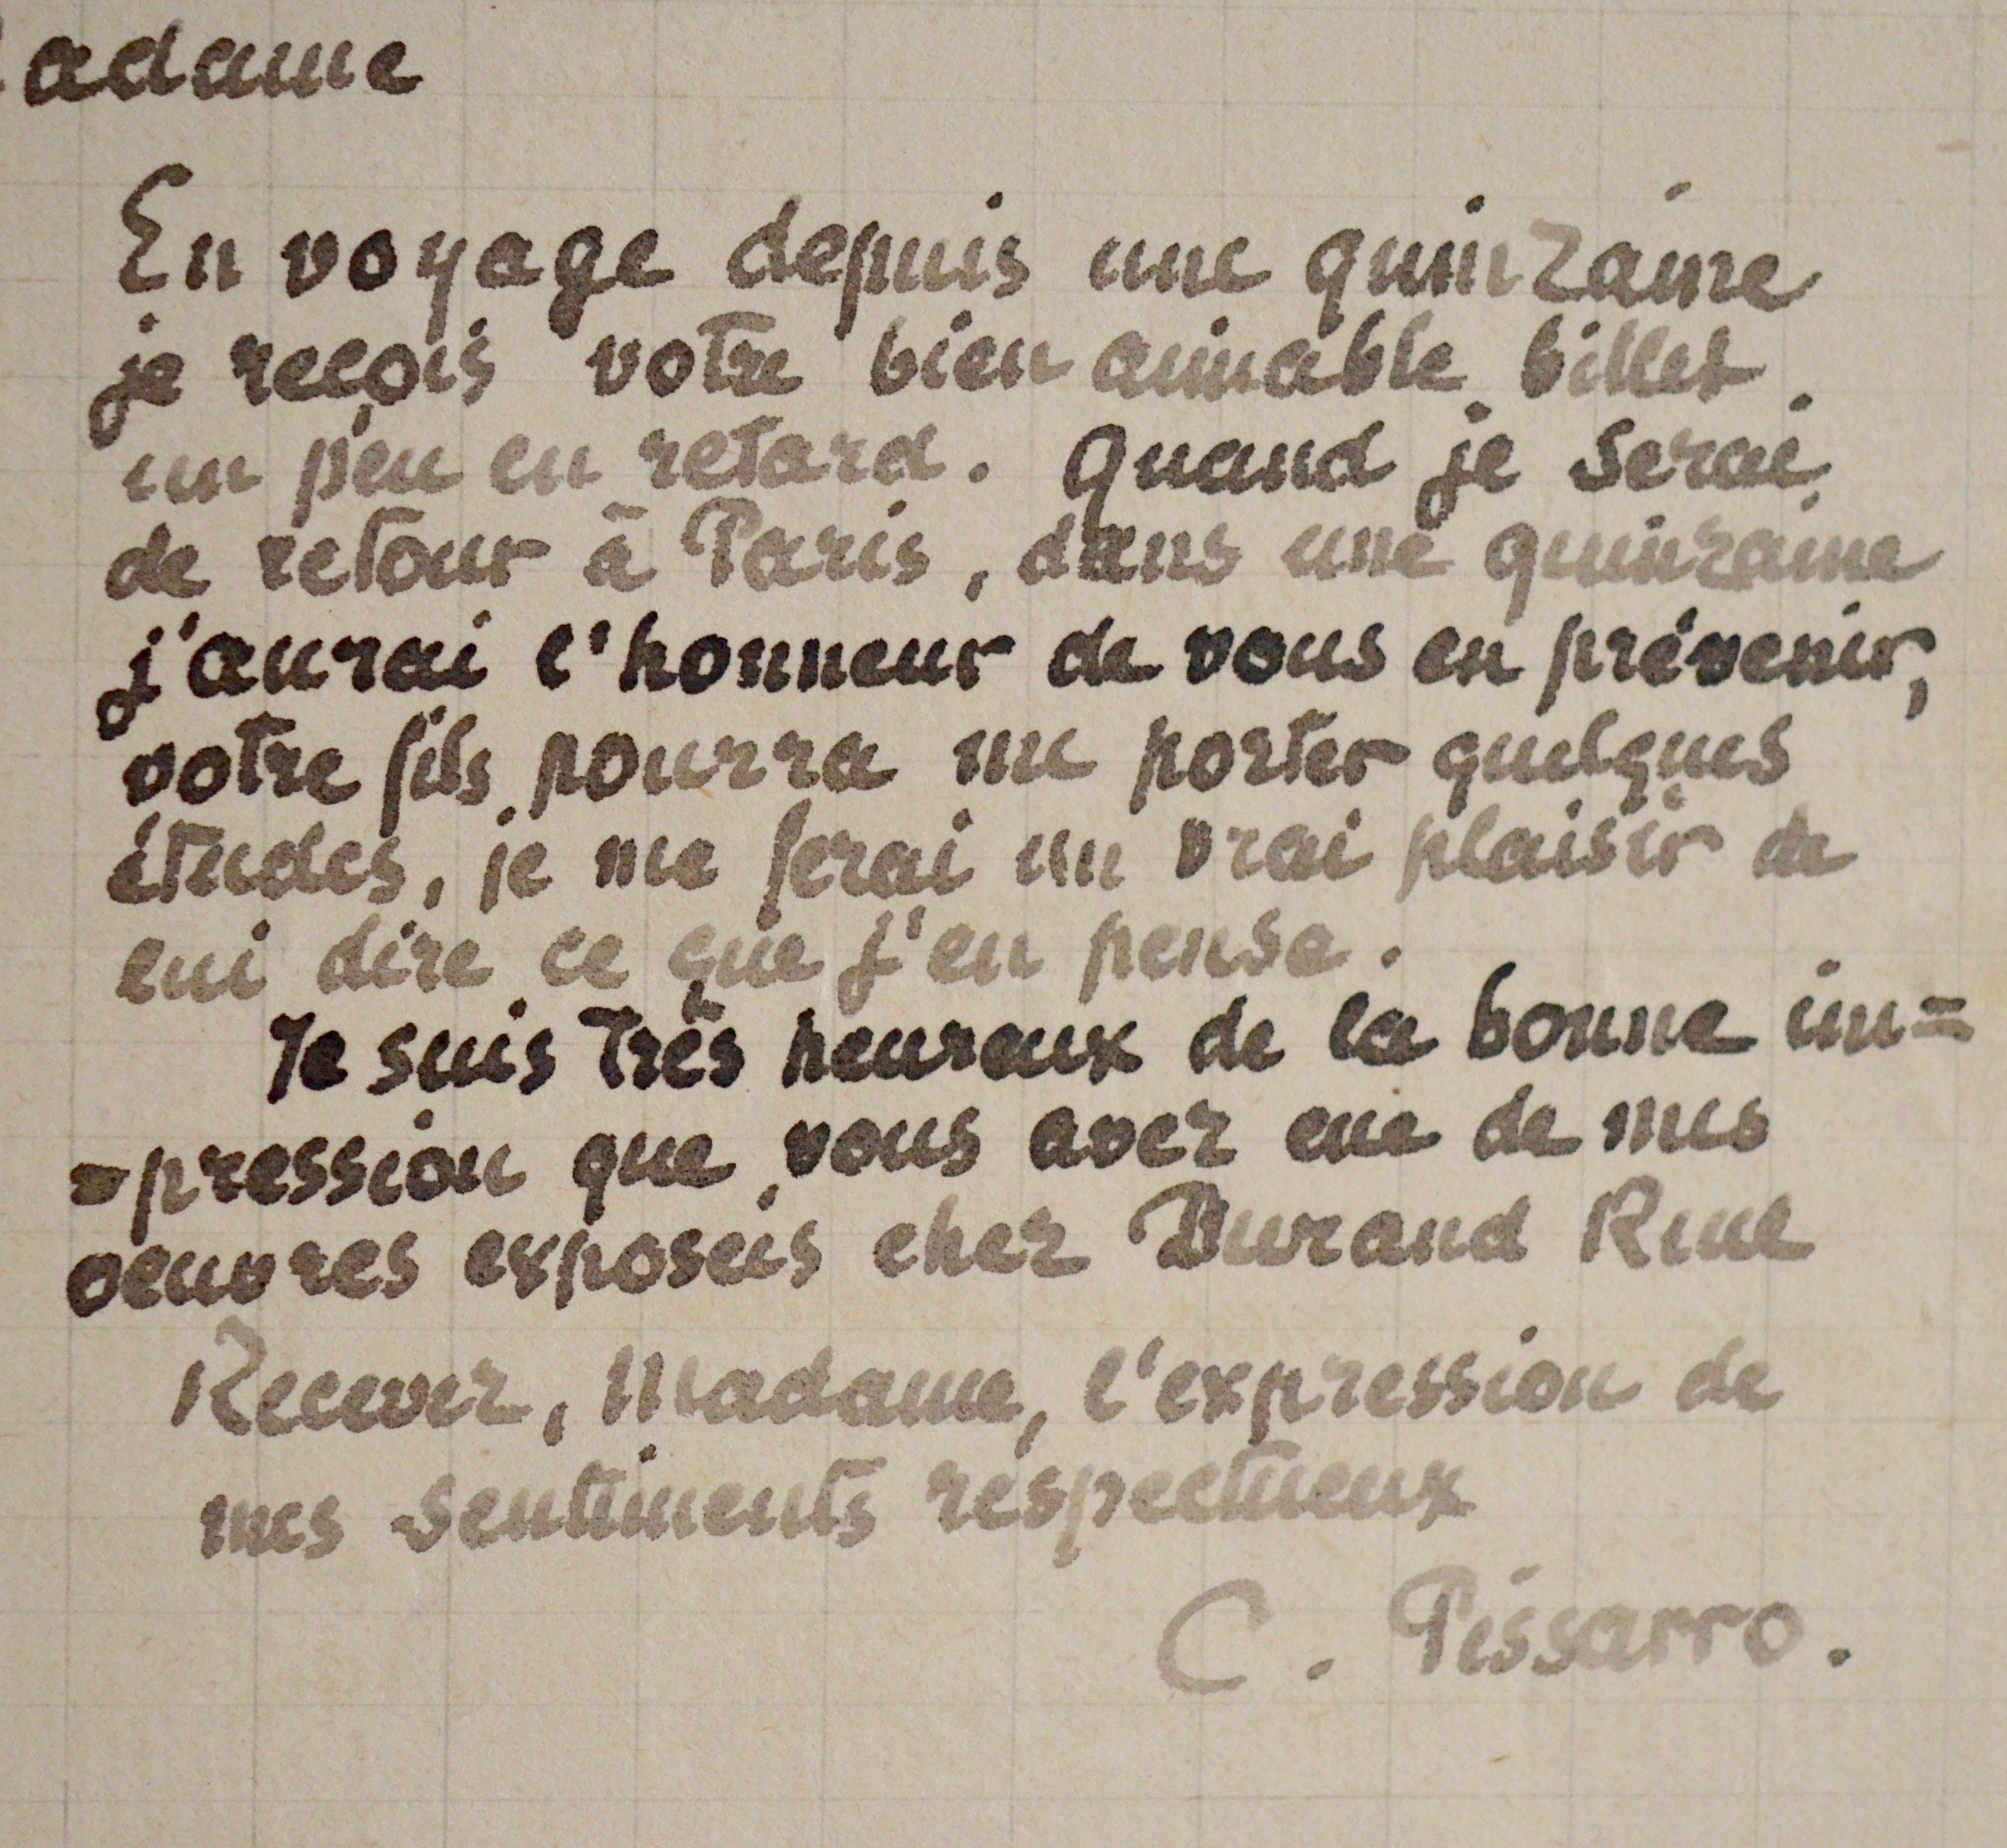 Madame
En voyage depuis une quinzaine
je reçois votre bien aimable billet
un peu en retard. Quand je serai
de retour à Paris, dans une quinzaine
j'aurai l'honneur de vous en prévenir,
votre fils pourra me porter quelques
études, je me ferai un vrai plaisir de
lui dire ce que j'en pense.
Je suis très heureux de la bonne im=
=pression que vous avez eue de mes
oeuvres exposées chez Durand Ruel
Recevez, Madame, l'expression de
mes sentiments respectueux
C. Pissarro.